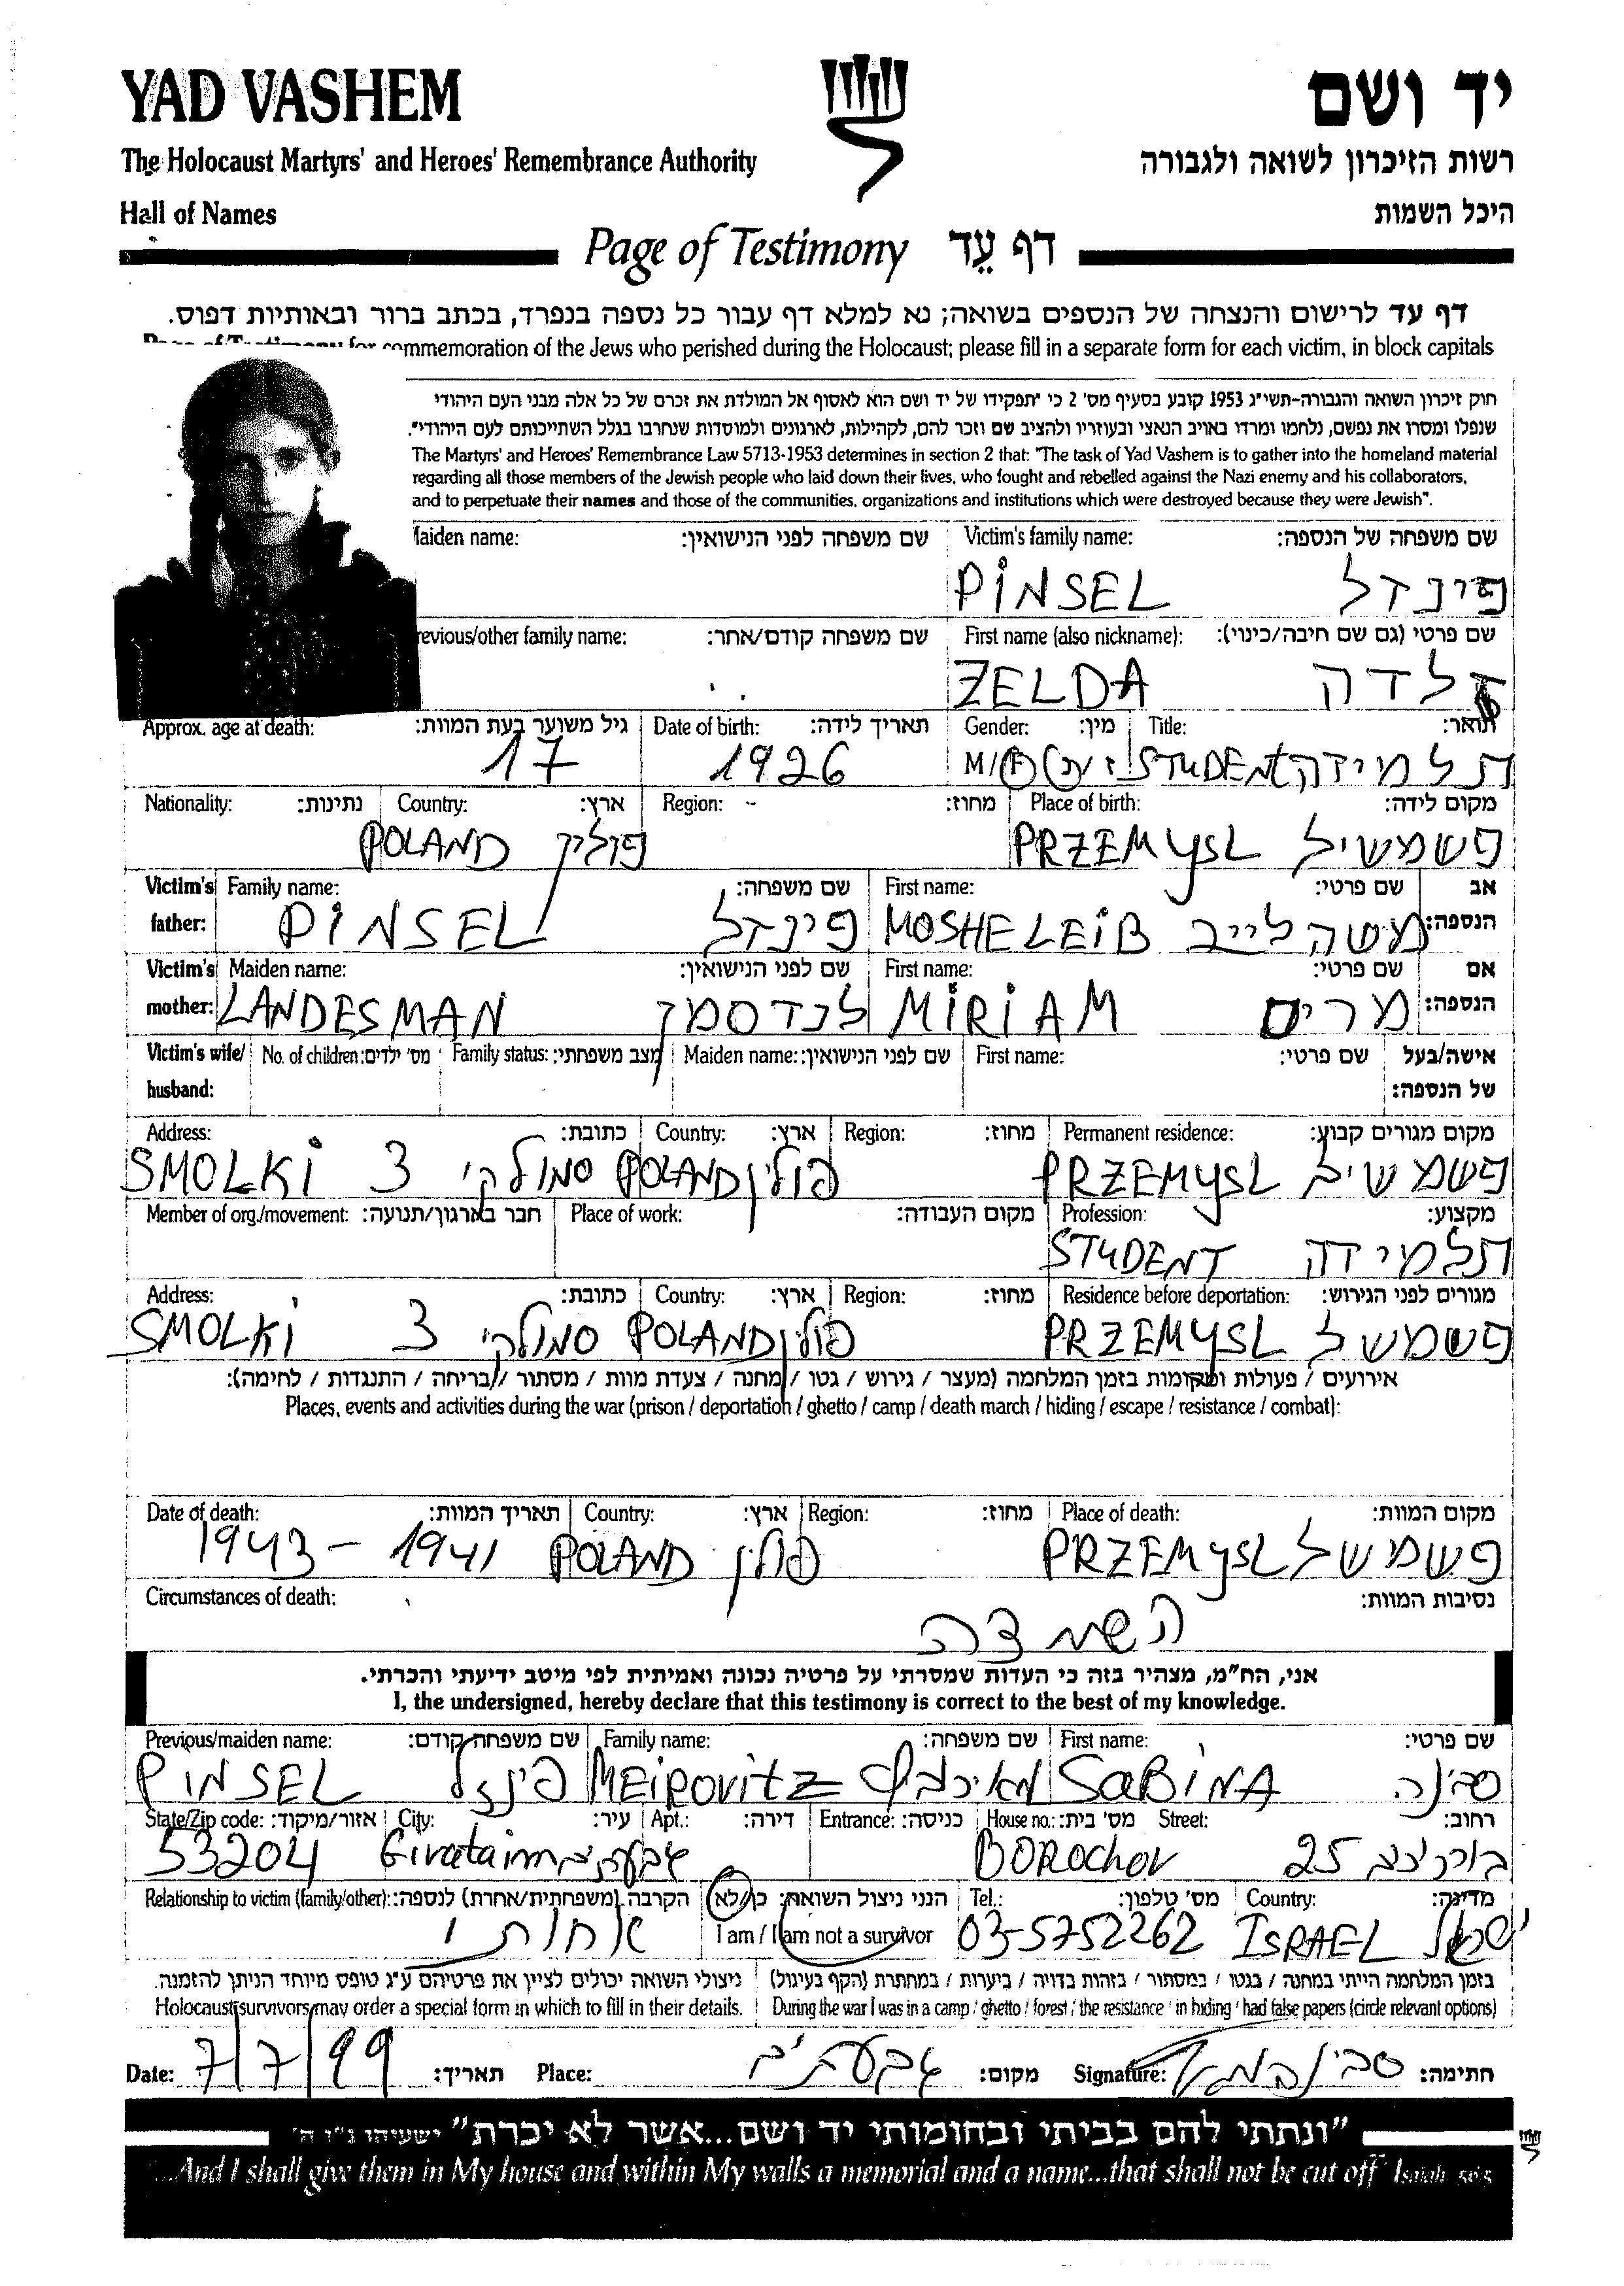 YAD VASHEM יד ושם
The Holocaust Martyrs' and Heroes' Remembrance Authority רשות הזיכרון לשואה ולגבורה
Hall of Names היכל השמות
Page of Testimony דף עֵד
דף עד לרישום והנצחה של הנספים בשואה; נא למלא דף עבור כל נספה בנפרד, בכתב ברור ובאותיות דפוס.
for commemoration of the Jews who perished during the Holocaust; please fill in a separate form for each victim, in block capitals
חוק זיכרון השואה והגבורה-תשי״ג 1953 קובע בסעיף מס' 2 כי "תפקידו של יד ושם הוא לאסוף אל המולדת את זכרם של כל אלה מבני העם היהודי
שנפלו ומסרו את נפשם, נלחמו ומרדו באויב הנאצי ובעוזריו ולהציב שם וזכר להם, לקהילות, לארגונים ולמוסדות שנחרבו בגלל השתייכותם לעם היהודי".
The Martyrs' and Heroes' Remembrance Law 5713-1953 determines in section 2 that: "The task of Yad Vashem is to gather into the homeland material
regarding all those members of the Jewish people who laid down their lives, who fought and rebelled against the Nazi enemy and his collaborators,
and to perpetuate their names and those of the communities, organizations and institutions which were destroyed because they were Jewish".
Maiden name: שם משפחה לפני הנישואין: Victim's family name: שם משפחה של הנספה:
PINSEL פינזל
revious/other family name: שם משפחה קודם/אחר: First name (also nickname): שם פרטי (גם שם חיבה/כינוי):
ZELDA זלדה
Approx. age at death: גיל משוער בעת המוות: Date of birth: תאריך לידה: Gender: מין: Title: תואר:
17 1926 M/F ז/נ STUDENT תלמידה
Nationality: נתינות: Country: ארץ: Region: מחוז: Place of birth: מקום לידה:
POLAND פולין PRZEMYSL פשמשיל
Victim's father: Family name: שם משפחה: First name: שם פרטי: אב הנספה:
PINSEL פינזל MOSHE LEIB משה לייב
Victim's mother: Maiden name: שם לפני הנישואין: First name: שם פרטי: אם הנספה:
LANDESMAN לנדסמן MIRIAM מרים
Victim's wife/ husband: No. of children: מס' ילדים: Family status: מצב משפחתי: Maiden name: שם לפני הנישואין: First name: שם פרטי: אישה/בעל של הנספה:
Address: כתובת: Country: ארץ: Region: מחוז: Permanent residence: מקום מגורים קבוע:
SMOLKI 3 סמולקי POLAND פולין PRZEMYSL פשמשיל
Member of org./movement: חבר בארגון/תנועה: Place of work: מקום העבודה: Profession: מקצוע:
STUDENT תלמידה
Address: כתובת: Country: ארץ: Region: מחוז: Residence before deportation: מגורים לפני הגירוש:
SMOLKI 3 סמולקי POLAND פולין PRZEMYSL פשמשל
אירועים / פעולות ומקומות בזמן המלחמה (מעצר / גירוש / גטו / מחנה / צעדת מוות / מסתור / בריחה / התנגדות / לחימה):
Places, events and activities during the war (prison / deportation / ghetto / camp / death march / hiding / escape / resistance / combat):
Date of death: תאריך המוות: Country: ארץ: Region: מחוז: Place of death: מקום המוות:
1943 - 1941 POLAND פולין PRZEMYSL פשמשל
Circumstances of death: נסיבות המוות:
השמדה
אני, הח״מ, מצהיר בזה כי העדות שמסרתי על פרטיה נכונה ואמיתית לפי מיטב ידיעתי והכרתי.
I, the undersigned, hereby declare that this testimony is correct to the best of my knowledge.
Previous/maiden name: שם משפחה קודם: Family name: שם משפחה: First name: שם פרטי:
PINSEL פינזל MEIROVITZ מאירוביץ SABINA סבינה
State/Zip code: אזור/מיקוד: City: עיר: Apt.: דירה: Entrance: כניסה: House no.: מס' בית: Street: רחוב:
53204 Givataim גבעתים BOROCHOV 25 בורוכוב
Relationship to victim (family/other): הקרבה (משפחתית/אחרת) לנספה: הנני ניצול השואה: כן/לא Tel.: מס' טלפון: Country: מדינה:
אחותי I am / I am not a survivor 03-5752262 ISRAEL ישראל
ניצולי השואה יכולים לציין את פרטיהם ע״ג טופס מיוחד הניתן להזמנה. בזמן המלחמה הייתי במחנה / בגטו / במסתור / בזהות בדויה / ביערות / במחתרת (הקף בעיגול)
Holocaust survivors may order a special form in which to fill in their details. During the war I was in a camp / ghetto / forest / the resistance / in hiding / had false papers (circle relevant options)
Date: 7/7/99 תאריך: Place: גבעתים מקום: Signature: חתימה:
"ונתתי להם בביתי ובחומותי יד ושם...אשר לא יכרת" ישעיהו נ״ו ה'
...And I shall give them in My house and within My walls a memorial and a name...that shall not be cut off Isaiah 56:5